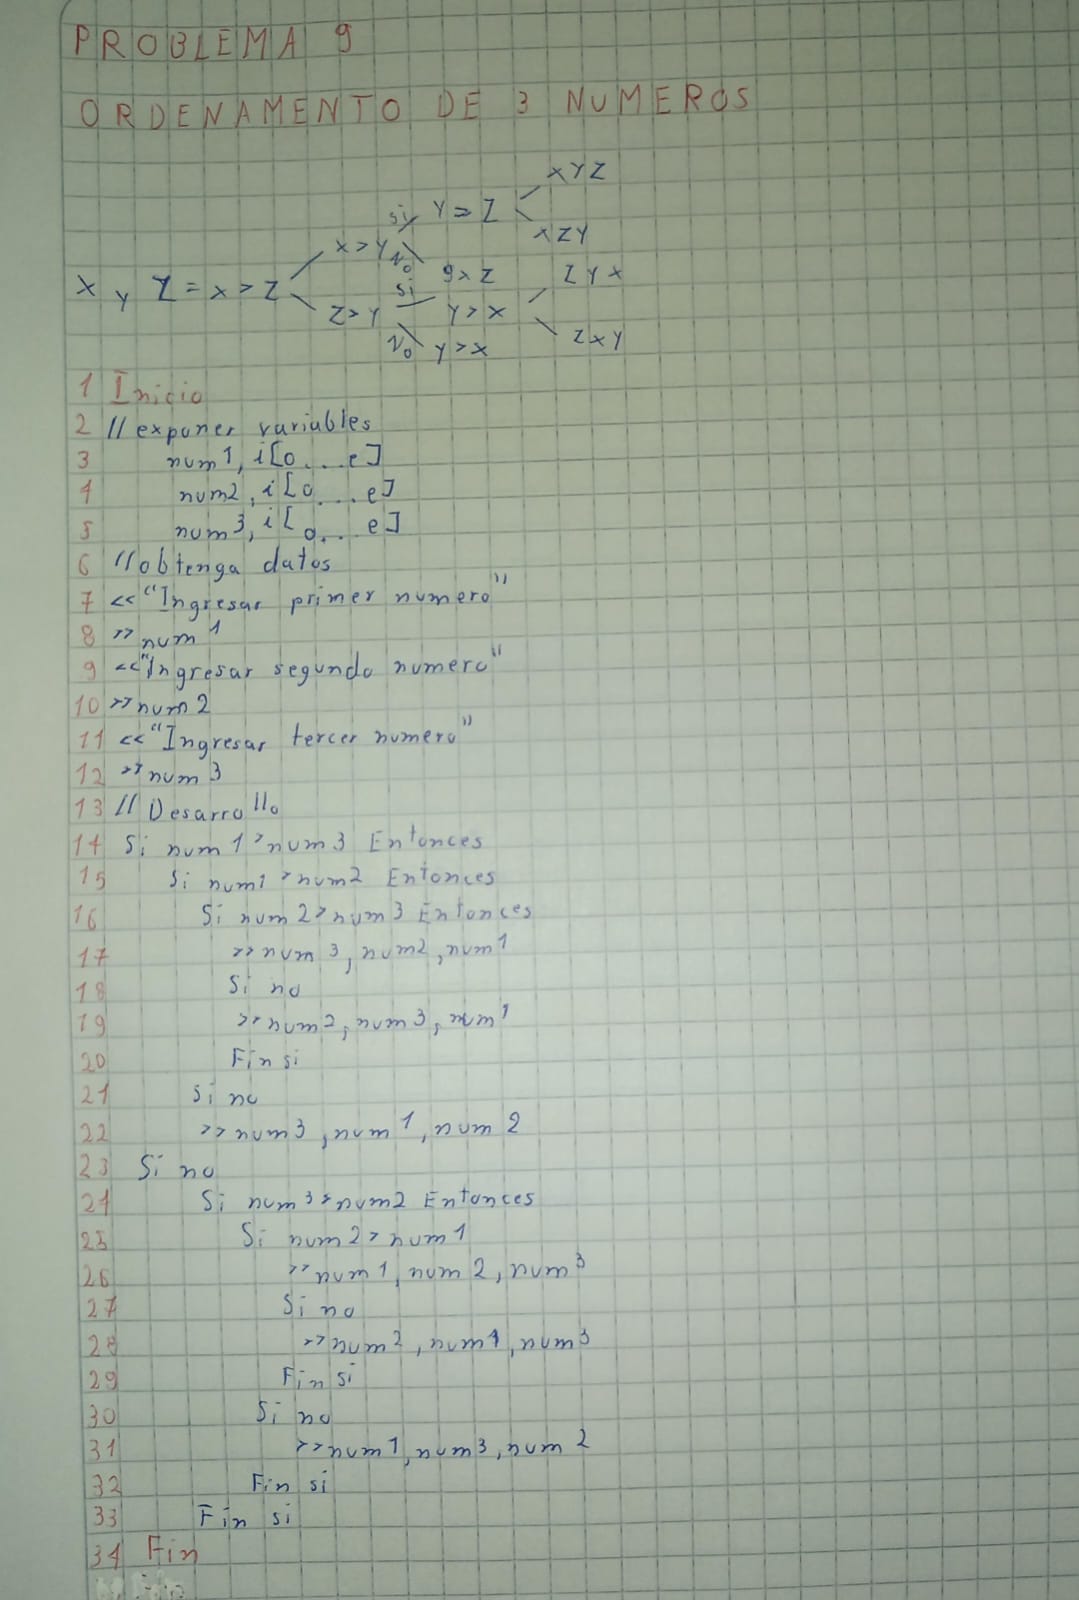 PROBLEMA 9
ORDENAMENTO DE 3 NUMEROS
XYZ
si Y > Z
XZY
X > Y No
9 x Z
Z Y X
X Y Z = X > Z
si
Z > Y
Y > X
Z X Y
No Y > X
1 Inicio
2 // exponer variables
3 num1, i[0...e]
4 num2, i[0...e]
5 num3, i[0...e]
6 // obtenga datos
7 << "Ingresar primer numero"
8 >> num 1
9 << "Ingresar segundo numero"
10 >> num2
11 << "Ingresar tercer numero"
12 >> num 3
13 // Desarrollo
14 Si num 1 > num3 Entonces
15 Si num1 > num2 Entonces
16 Si num 2 > num3 Entonces
17 >> num 3, num2, num1
18 Si no
19 >> num2, num3, num1
20 Fin si
21 Si no
22 >> num3, num1, num 2
23 Si no
24 Si num3 > num2 Entonces
25 Si num2 > num1
26 >> num1, num 2, num3
27 Si no
28 >> num2, num1, num3
29 Fin si
30 Si no
31 >> num1, num3, num2
32 Fin si
33 Fin si
34 Fin